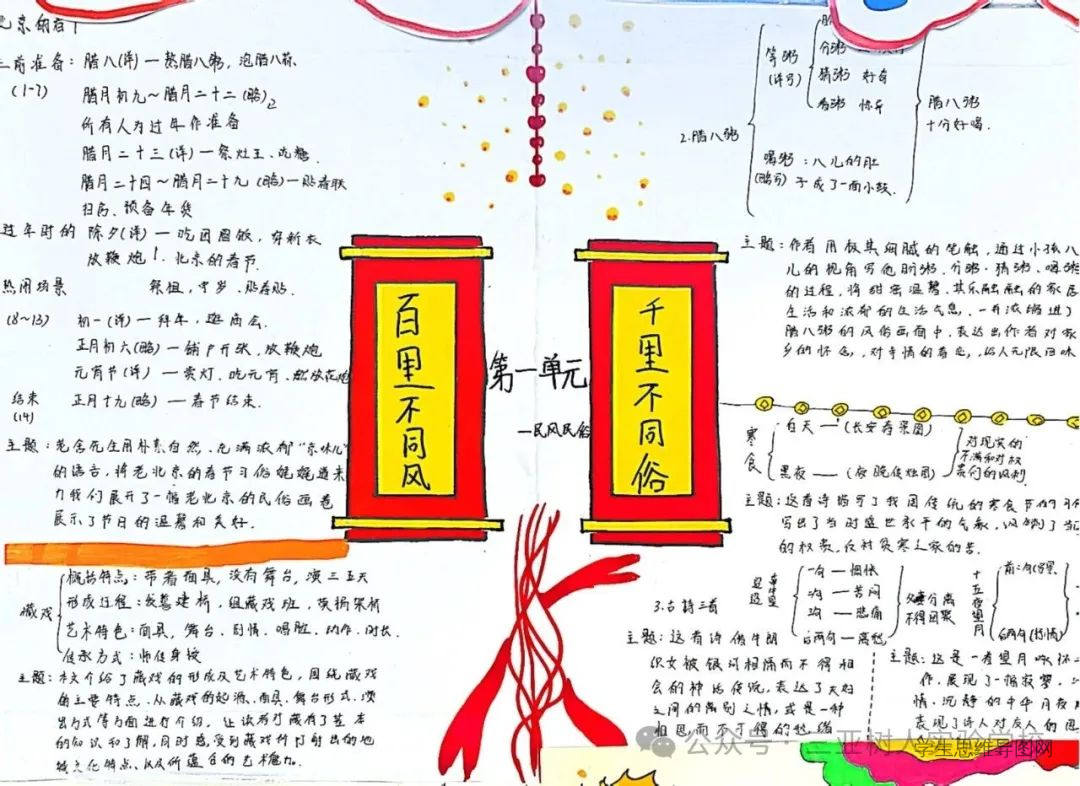 北京的春节
腊八(详)一熬腊八粥,泡腊八蒜
(1-7)
腊月初九~腊月二十二(略)
所有人为过年作准备
腊月二十三(详)一祭灶王、吃糖.
腊月二十四~腊月二十九(略)一贴春联
扫房、预备年货
过年时的
除夕(详)一吃团圆饭,穿新衣
放鞭炮!北京的春节.
热闹场景
祭祖,守岁,贴春贴.
(8~13)
初一(详)一拜年,逛庙会.
正月初六(略)一铺户开张,放鞭炮
元宵节(详)一卖灯,吃元宵、燃放花炮
结束
(14)
正月十九(略)一春节结束.
主题:老舍先生用朴素自然、充满浓郁“京味儿”
的语言,将老北京的春节习俗娓娓道来
为我们展开了一幅老北京的民俗画卷
展示了节日的温馨和美好.
藏戏
概括特点:带着面具,没有舞台,演三五天
形成过程:发愿建桥,组藏戏班,
艺术特色:面具,舞台、剧情、唱腔、动作、时长.
传承方式:师传身授
主题:本文介绍了藏戏的形成及艺术特色,围绕藏戏
的主要特点、从藏戏的起源、面具、舞台形式、演
出方式等方面进行介绍,让读者对藏有了基本
的知识和了解,同时感受到藏戏
特文化特点、以及所蕴含的艺术魅力.
百里不同风
第一单元
一民风民俗
千里不同俗
2.腊八粥
等粥
(详写)
分粥
猜粥 好奇
看粥 惊异
喝粥:八儿的肚
(略写)子成了一面小鼓.
腊八粥
十分好喝.
主题:作者用极其细腻的笔触,通过小孩八
儿的视角写他盼粥、分粥、猜粥、喝粥
的过程,将甜蜜温馨、其乐融融的家庭
生活和浓郁的生活气息,一并浓缩进了
腊八粥的风俗画面中,表达出作者对家
乡的怀念,对亲情的眷恋,给人无限回味
寒食
白天一(长安春景图)
黑夜——(夜晚传烛图)
对现实的
不满和对权
贵们的讽刺
主题:这首诗描写了我国传统的寒食节的
写出了当时盛世承平的气象,讽刺了
的权贵,反衬贫寒之家的苦.
3.古诗三首
迢迢牵牛星
后两句一离愁
夫妻分离
不得团聚
十五夜望月
后两句(抒情)
主题:这首诗借牛郎
织女被银河相隔而不得相
会的神话传说,表达了夫妇
之间的离别之情,或是一种
相思而不可得的愁绪
主题:这是一首望月
作,展现了一幅寂寥、
情,沉静的中秋月夜
表现了诗人对友人的思
公众号·三亚树人实验学校
学生思维导图网